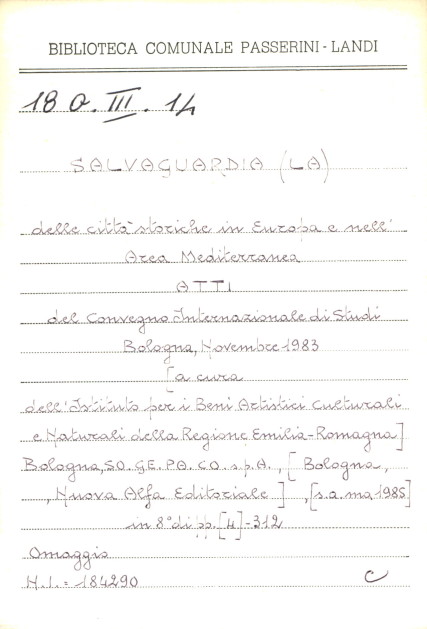 BIBLIOTECA COMUNALE PASSERINI - LANDI
18 O. III. 14
SALVAGUARDIA (LA)
delle città storiche in Europa e nell'
Area Mediterranea
ATTI
del Convegno Internazionale di Studi
Bologna, Novembre 1983
[a cura
dell'Istituto per i Beni Artistici Culturali
e Naturali della Regione Emilia-Romagna]
Bologna, SO. GE. PA. CO. s.p.A., [Bologna,
, Nuova Alfa Editoriale], [s.a. ma 1985]
in 8° di pp. [4]-312
Omaggio
N.I. = 184290 C